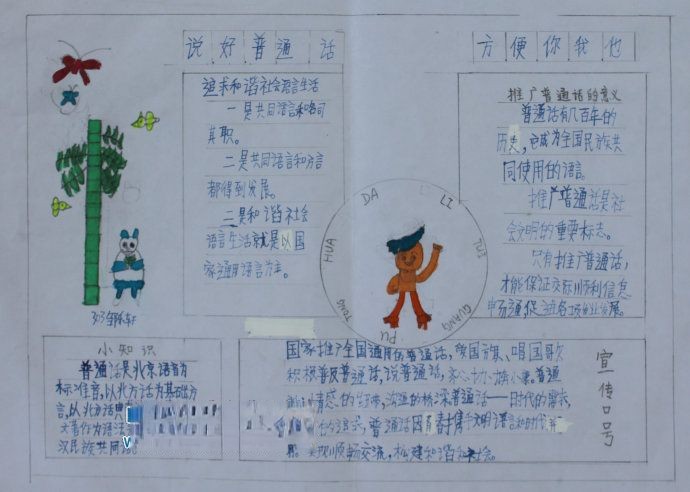 说好普通话
方便你我他
追求和谐社会语言生活
一是共同语言和各司
其职。
二是共同语言和方言
都得到发展。
三是和谐社会
语言生活就是以国
家通用语言为主。
推广普通话的意义
普通话有几百年的
历史,它成为全国民族共
同使用的语言。
推广普通话是社
会文明的重要标志。
只有推广普通话,
才能保证交际顺利信息
畅通,促进各项事业发展。
DA LI TUI GUANG PU TONG HUA
303
小知识
普通话是北京语音为
标准音,以北方话为基础方
言,以北方话
文著作为语法
汉民族共同
国家推广全国通用的普通话,
国旗、唱国歌
积极普及普通话,说普通话,
普通
情感的
沟通的桥梁普通话——时代的需求,
的要求,普通话
文明语言和时代
顺畅交流,构建和谐社会。
宣传口号